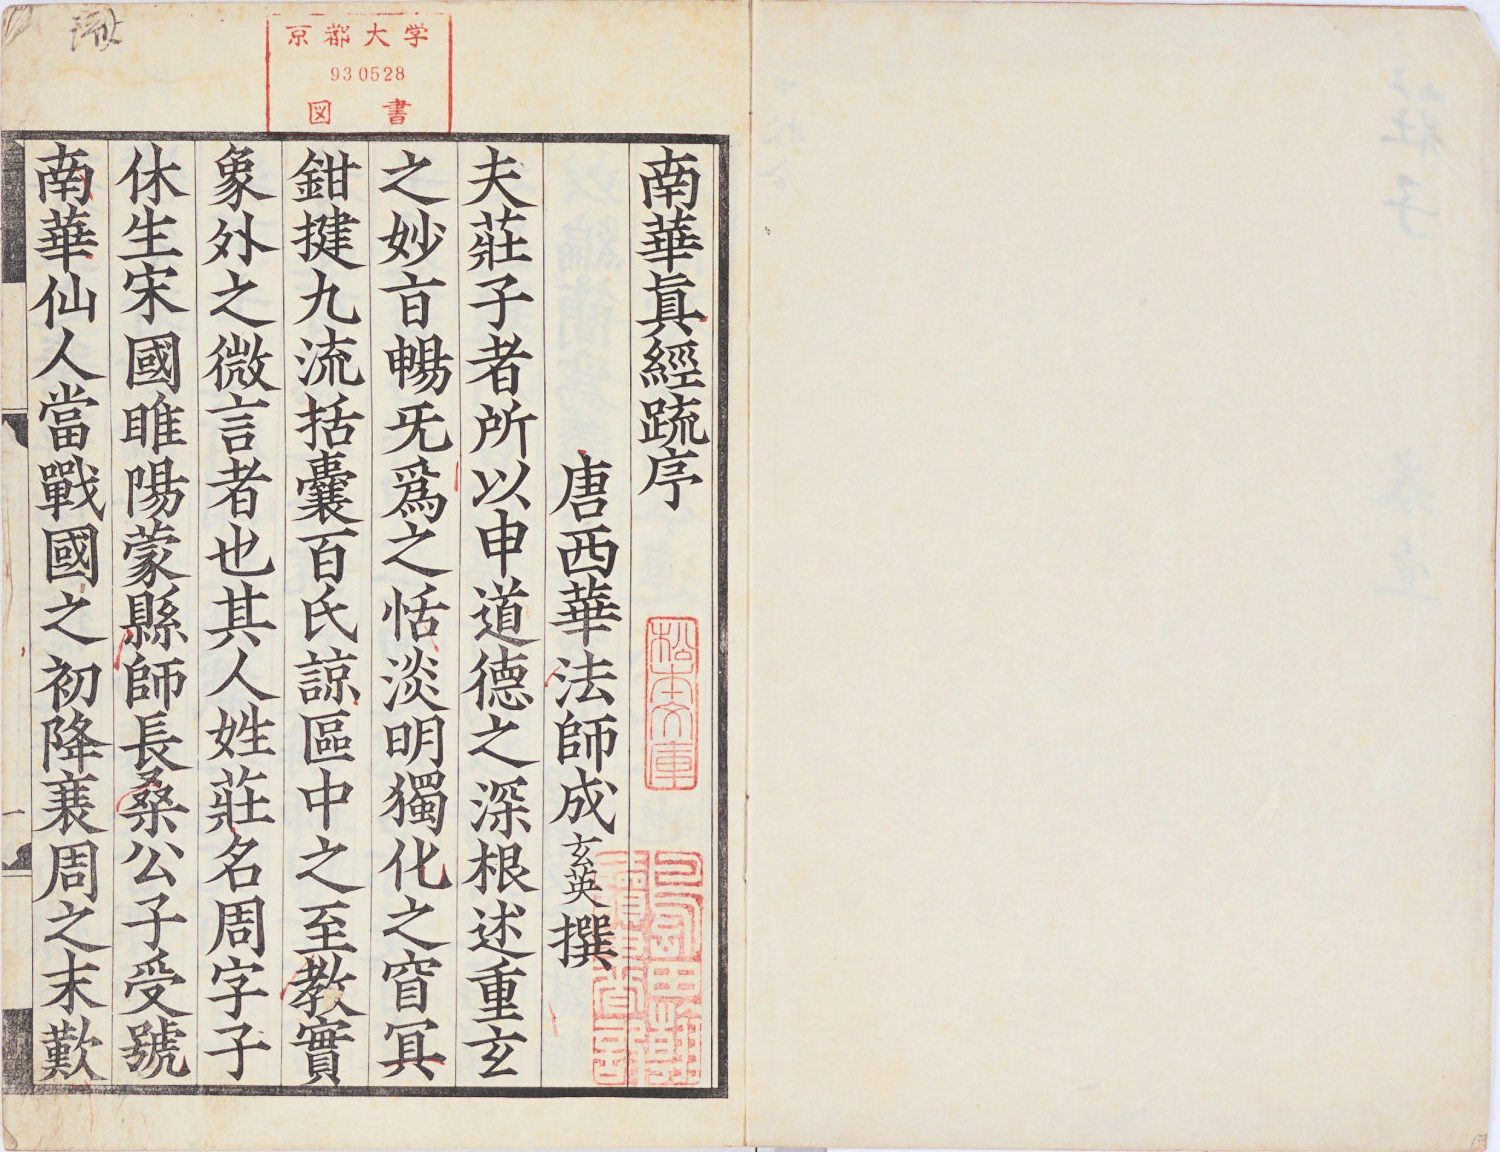 南華眞經疏序
唐西華法師成玄英撰
夫莊子者所以申道德之深根述重玄
之妙㫖暢旡爲之恬淡明獨化之窅冥
鉗揵九流括囊百氏諒區中之至教實
象外之微言者也其人姓莊名周字子
休生宋國睢陽蒙縣師長桑公子受號
南華仙人當戰國之初降衰周之末歎
京都大学
930528
図書
松本文庫